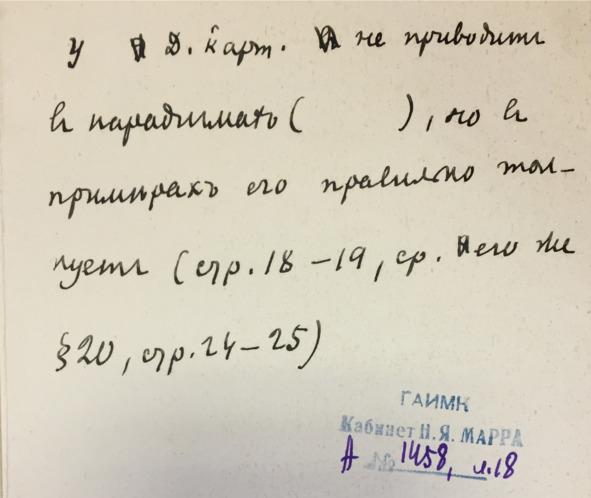 У Д. Карт. не приводитъ
въ парадигмахъ ( ), но въ
примѣрахъ его правильно тол-
куетъ (стр. 18 – 19, ср. его же
§ 20, стр. 24 – 25)
ГАИМК
Кабинет Н. Я. МАРРА
А № 1458, л. 18